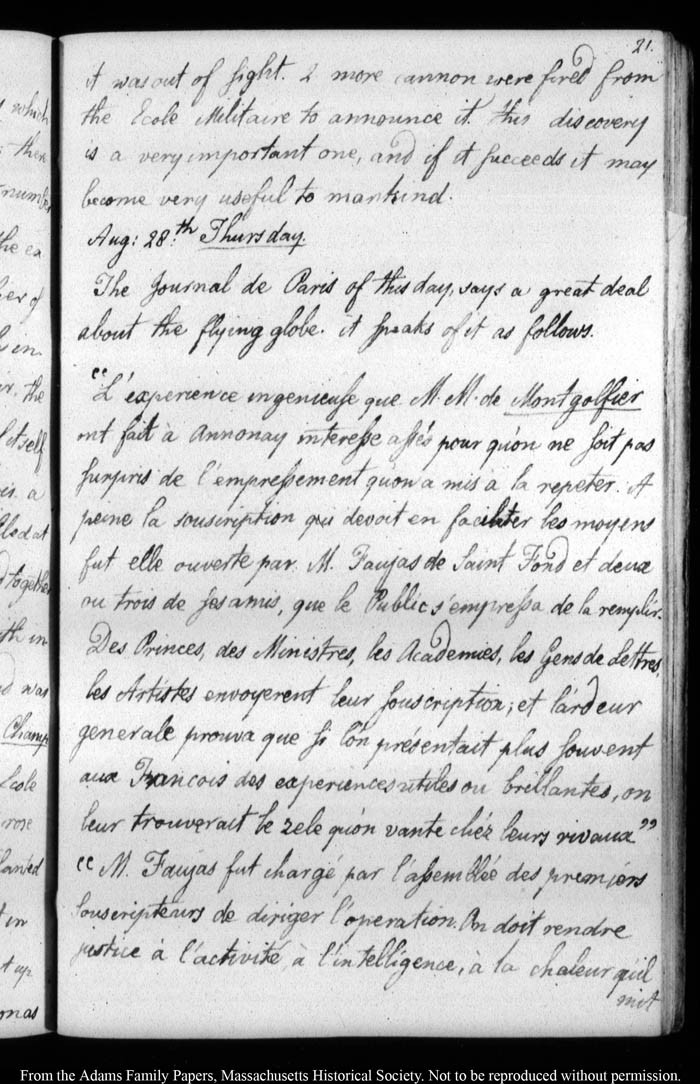 21.
it was out of sight. 2 more cannon were fired from
the Ecole Militaire to announce it. this discovery
is a very important one, and if it succeeds it may
become very useful to mankind.
Aug: 28.th Thursday.
The Journal de Paris of this day, says a great deal
about the flying globe. it speaks of it as follows.
"L'experience ingenieuse que M. M. de Montgolfier
ont fait à Annonay interesse assés pour qu'on ne soit pas
surpris de l'empressement qu'on a mis à la repeter. A
peine la souscription qui devoit en faciliter les moyens
fut elle ouverte par M. Faujas de Saint Fond et deux
ou trois de ses amis, que le Public s'empressa de la remplir.
Des Princes, des Ministres, les Academies, les Gens de Lettres,
les Artistes envoyerent leur souscription; et l'ardeur
generale prouva que si l'on présentait plus souvent
aux Francois des experiences utiles ou brillantes, on
leur trouverait le zele qu'on vante chéz leurs rivaux"
"M. Faujas fut chargé par l'assemblée des premiers
souscripteurs de diriger l'operation. On doit rendre
justice à l'activité, à l'intelligence, à la chaleur qu'il
mit
which
there
number
the ex
ber of
in
the
itself
a
led at
together
in
was
Champ
Ecole
rose
in
up
mas
From the Adams Family Papers, Massachusetts Historical Society. Not to be reproduced without permission.